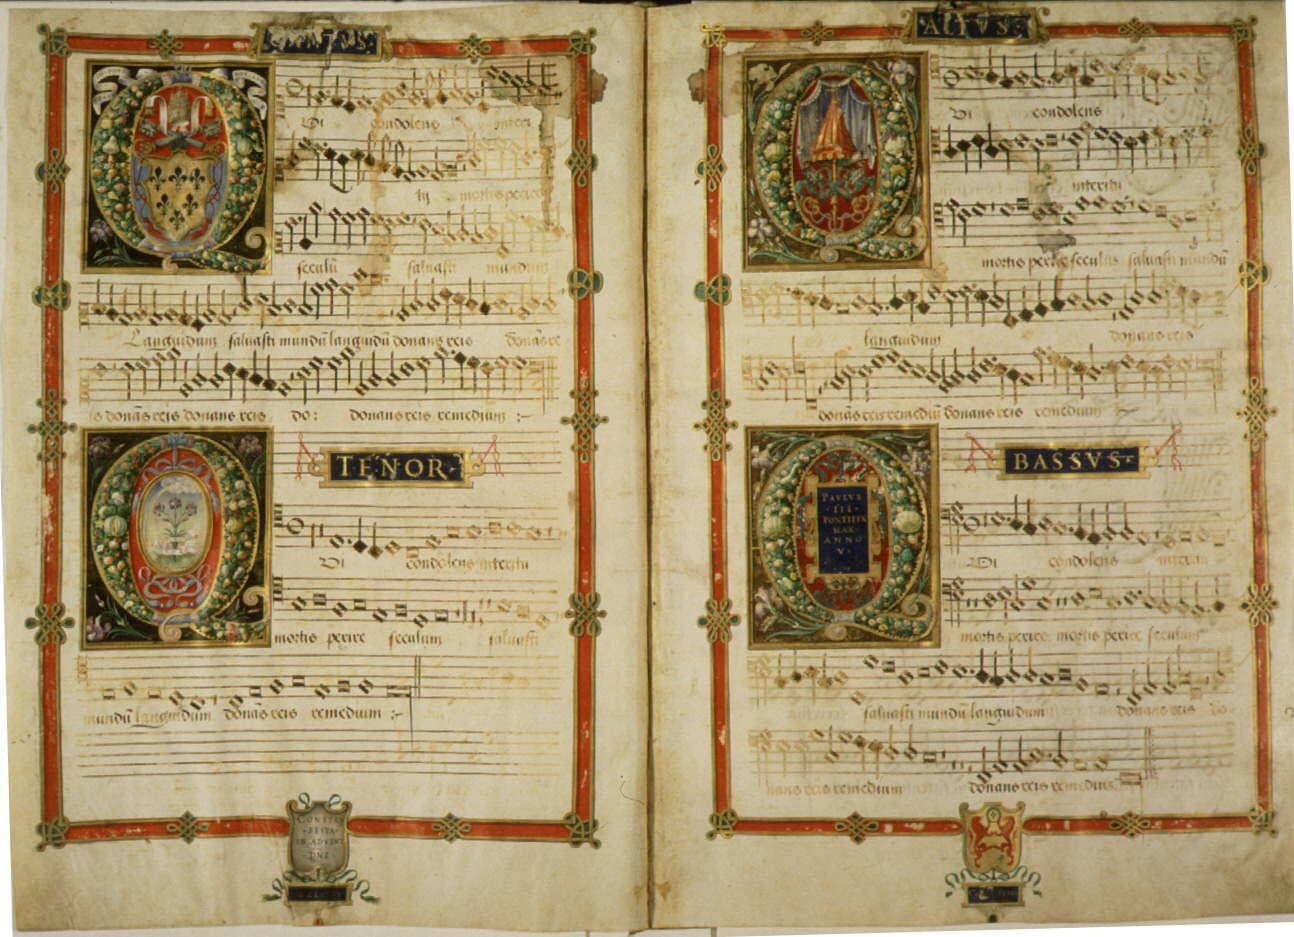 CANTVS
Qui condolens interi
tu mortis perire
seculũ saluasti mundum
languidum saluasti mundũ languidũ donans reis donans re
is donãs reis donans reis do: donans reis remedium :~
TENOR
Qui condolens interitu
mortis perire seculum saluasti
mundũ languidum donãs reis remedium :~
CONSTAN
FESTA
IN ADVENT
DNI
ALTVS
Qui condolens
interitu
mortis perire seculus saluasti mundũ
languidum donans reis
donãs reis remediũ donans reis remedium
BASSVS
PAVLVS
III
PONTIFEX
MAX
ANNO
V
Qui condolens interitu
mortis perire mortis perire seculum
saluasti mundum languidum donans reis do
nans reis remedium donans reis remedium